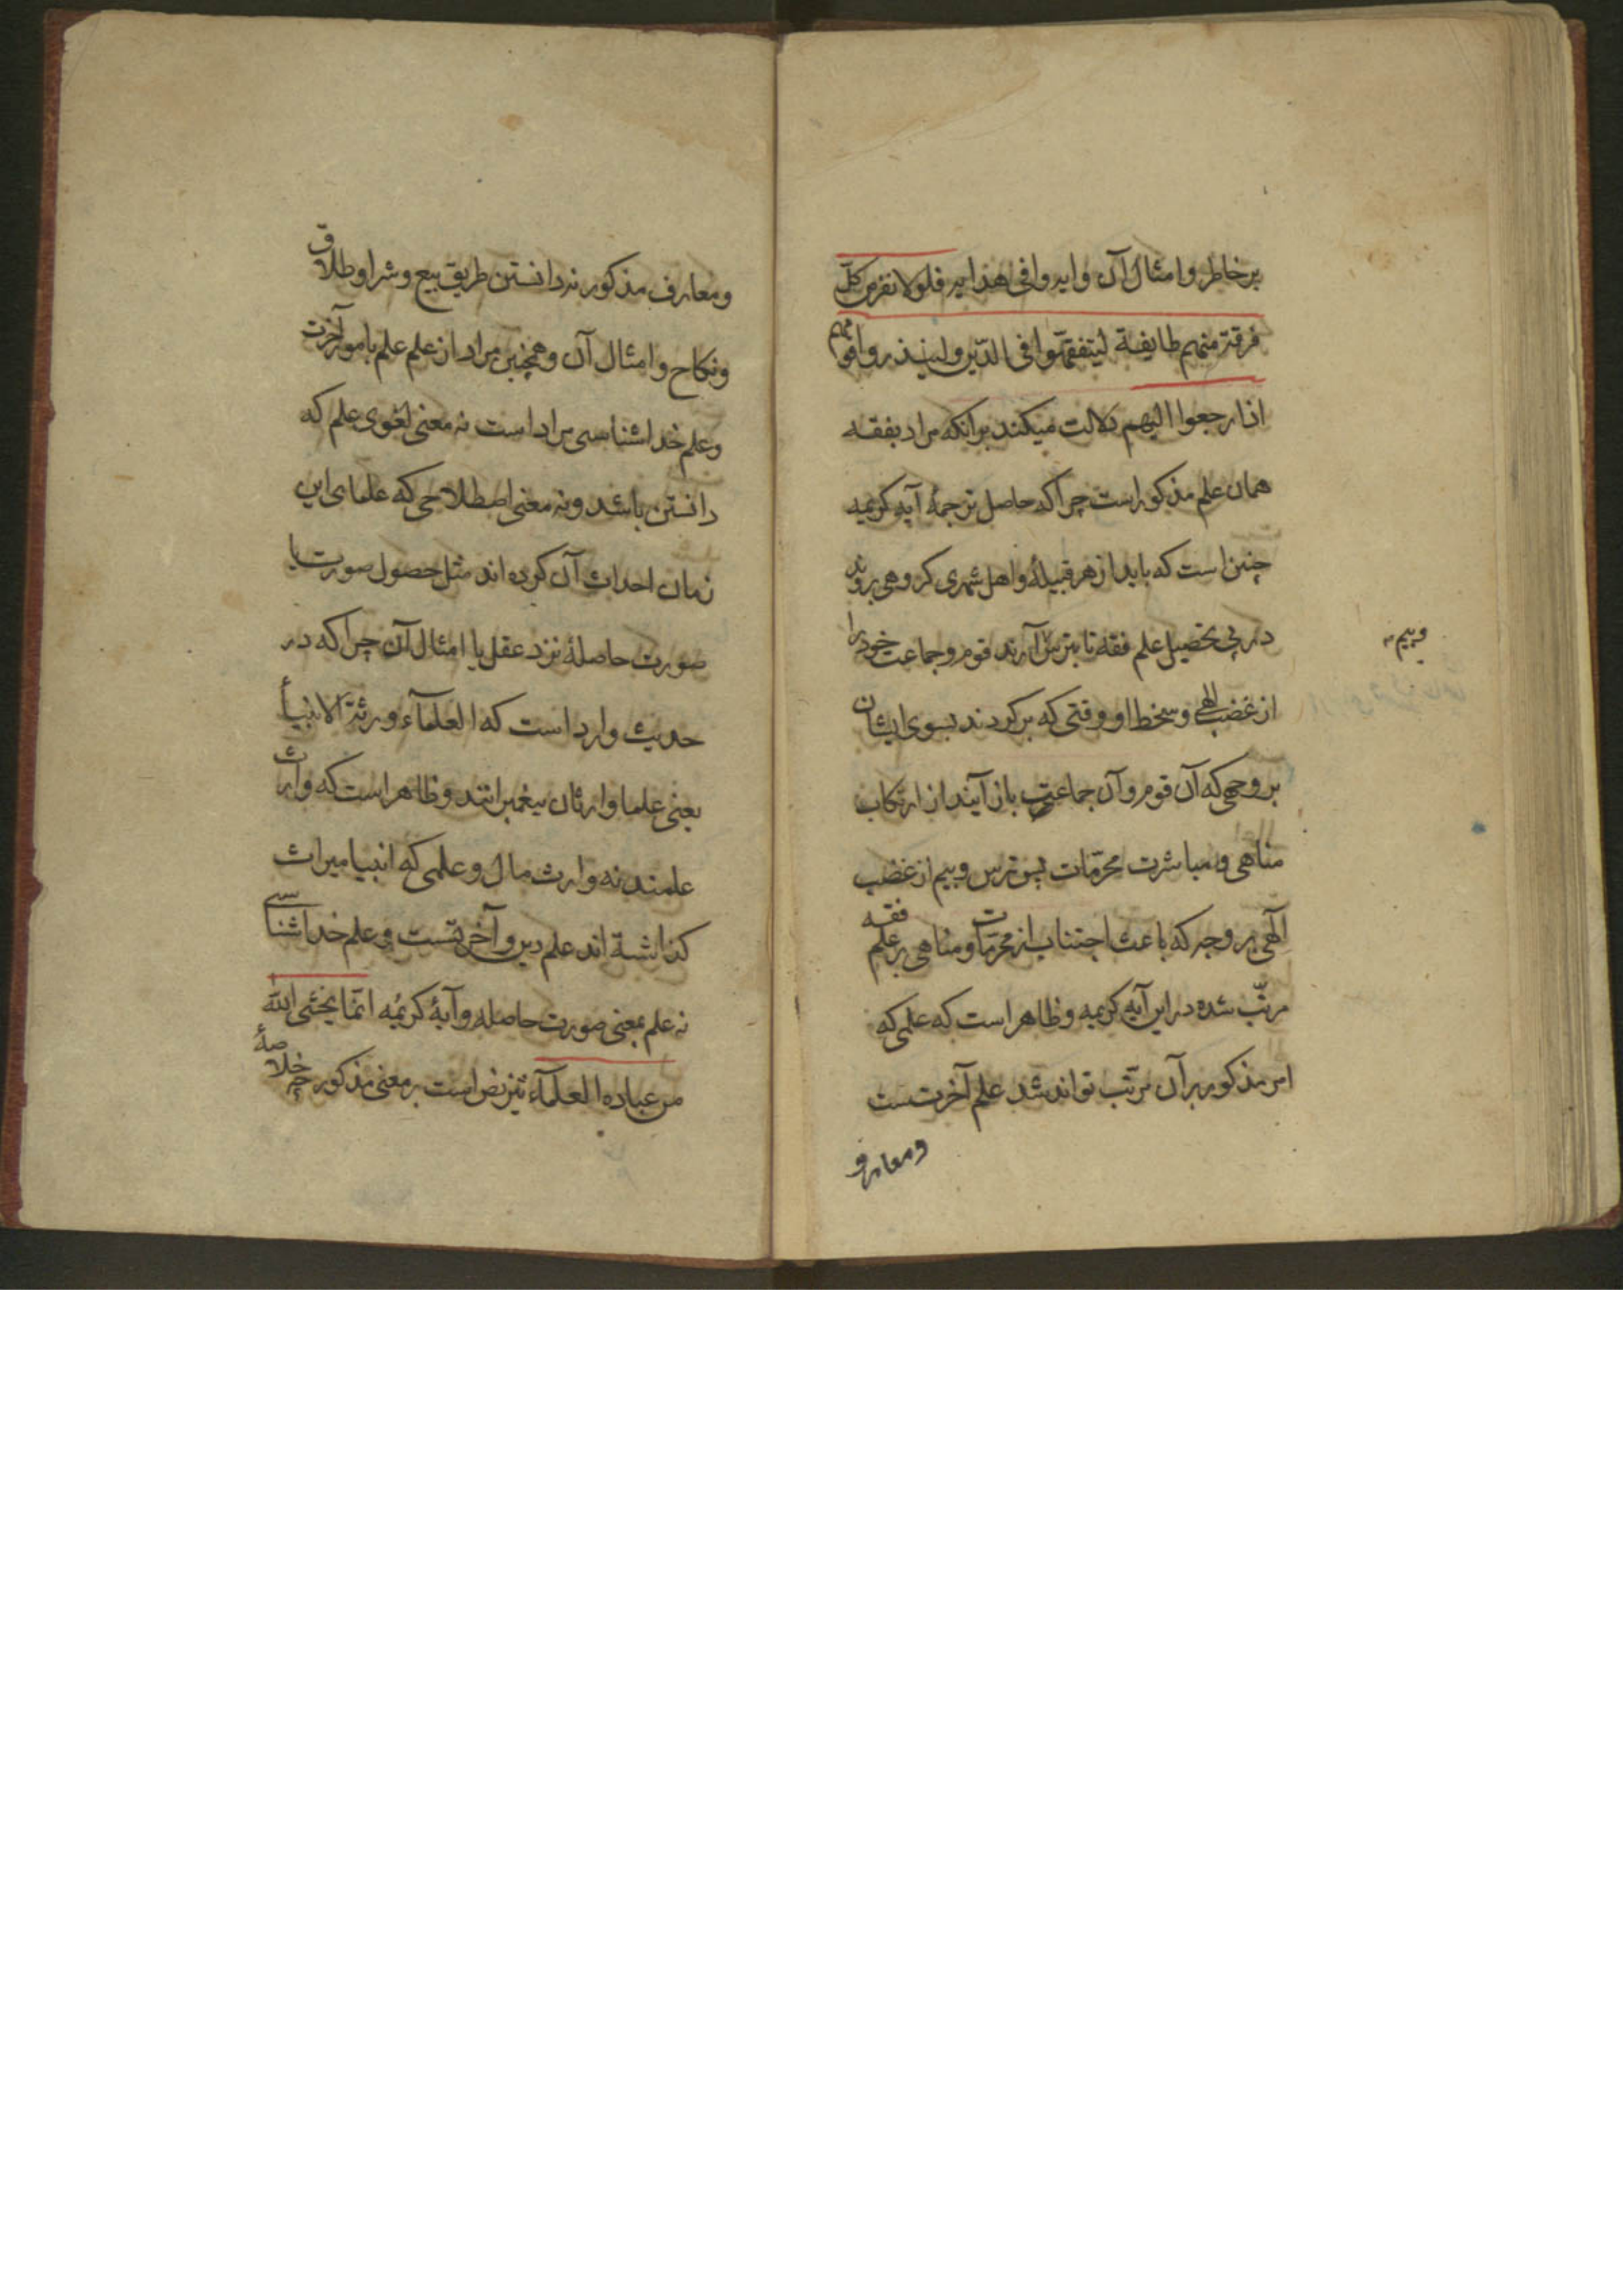 بر خاطر و امثال آن وایه وافی هدایه فلولا نفر من کلّ
فرقة منهم طایفة لیتفقهّوا فی الدّین ولینذروا قومهم
اذا رجعوا الیهم دلالت میکند برانکه مراد بفقه
همان علم مذکور است چرا که حاصل ترجمهٔ آیه کریمه
چنین است که باید از هر قبیلهٔ و اهل شهری کروهی بروند
در پی تحصیل علم فقه تا بترس آرند قوم و جماعت خود را
وبیم
از غضب الهی و سخط او وقتی که برکردند بسوی ایشان
بر وجهی که آن قوم و آن جماعت باز آیند از ارتکاب
مناهی و مباشرت محرّمات پس ترس و بیم از غضب
آلهی بر وجهی که باعث اجتناب از محرّمات و مناهی بر علم فقه
مرتّب شده در این آیه کریمه و ظاهر است که علمی که
امر مذکور بر آن مرتّب تواند شد علم آخرتست
ومعارف
ومعارف مذکور نه دانستن طریق بیع و شرا و طلاق
ونکاح و امثال آن و همچنین مراد از علم علم بامور آخرت
وعلم خدا شناسی مراد است نه معنی لغوی علم که
دانستن باشد و نه معنی اصطلاحی که علمای این
زمان احداث آن کرده اند مثل حصول صورت یا
صورت حاصلهٔ نزد عقل یا امثال آن چرا که در
حدیث وارد است که العلمآء ورثة الانبیأ
یعنی علما وارثان پیغمبرانند و ظاهر است که وارث
علمند نه وارث مال و علمی که انبیا میراث
کذاشته اند علم دین و آخرتست و علم خدا شناسی
نه علم بمعنی صورت حاصله و آیهٔ کریمه انّما یخشی الله
من عباده العلمآء نیز نص است بر معنی مذکور چه خلاصهٔ